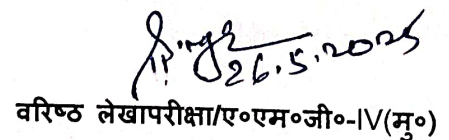 26.5.2025
वरिष्ठ लेखापरीक्षा/ए०एम०जी०-IV(मु०)